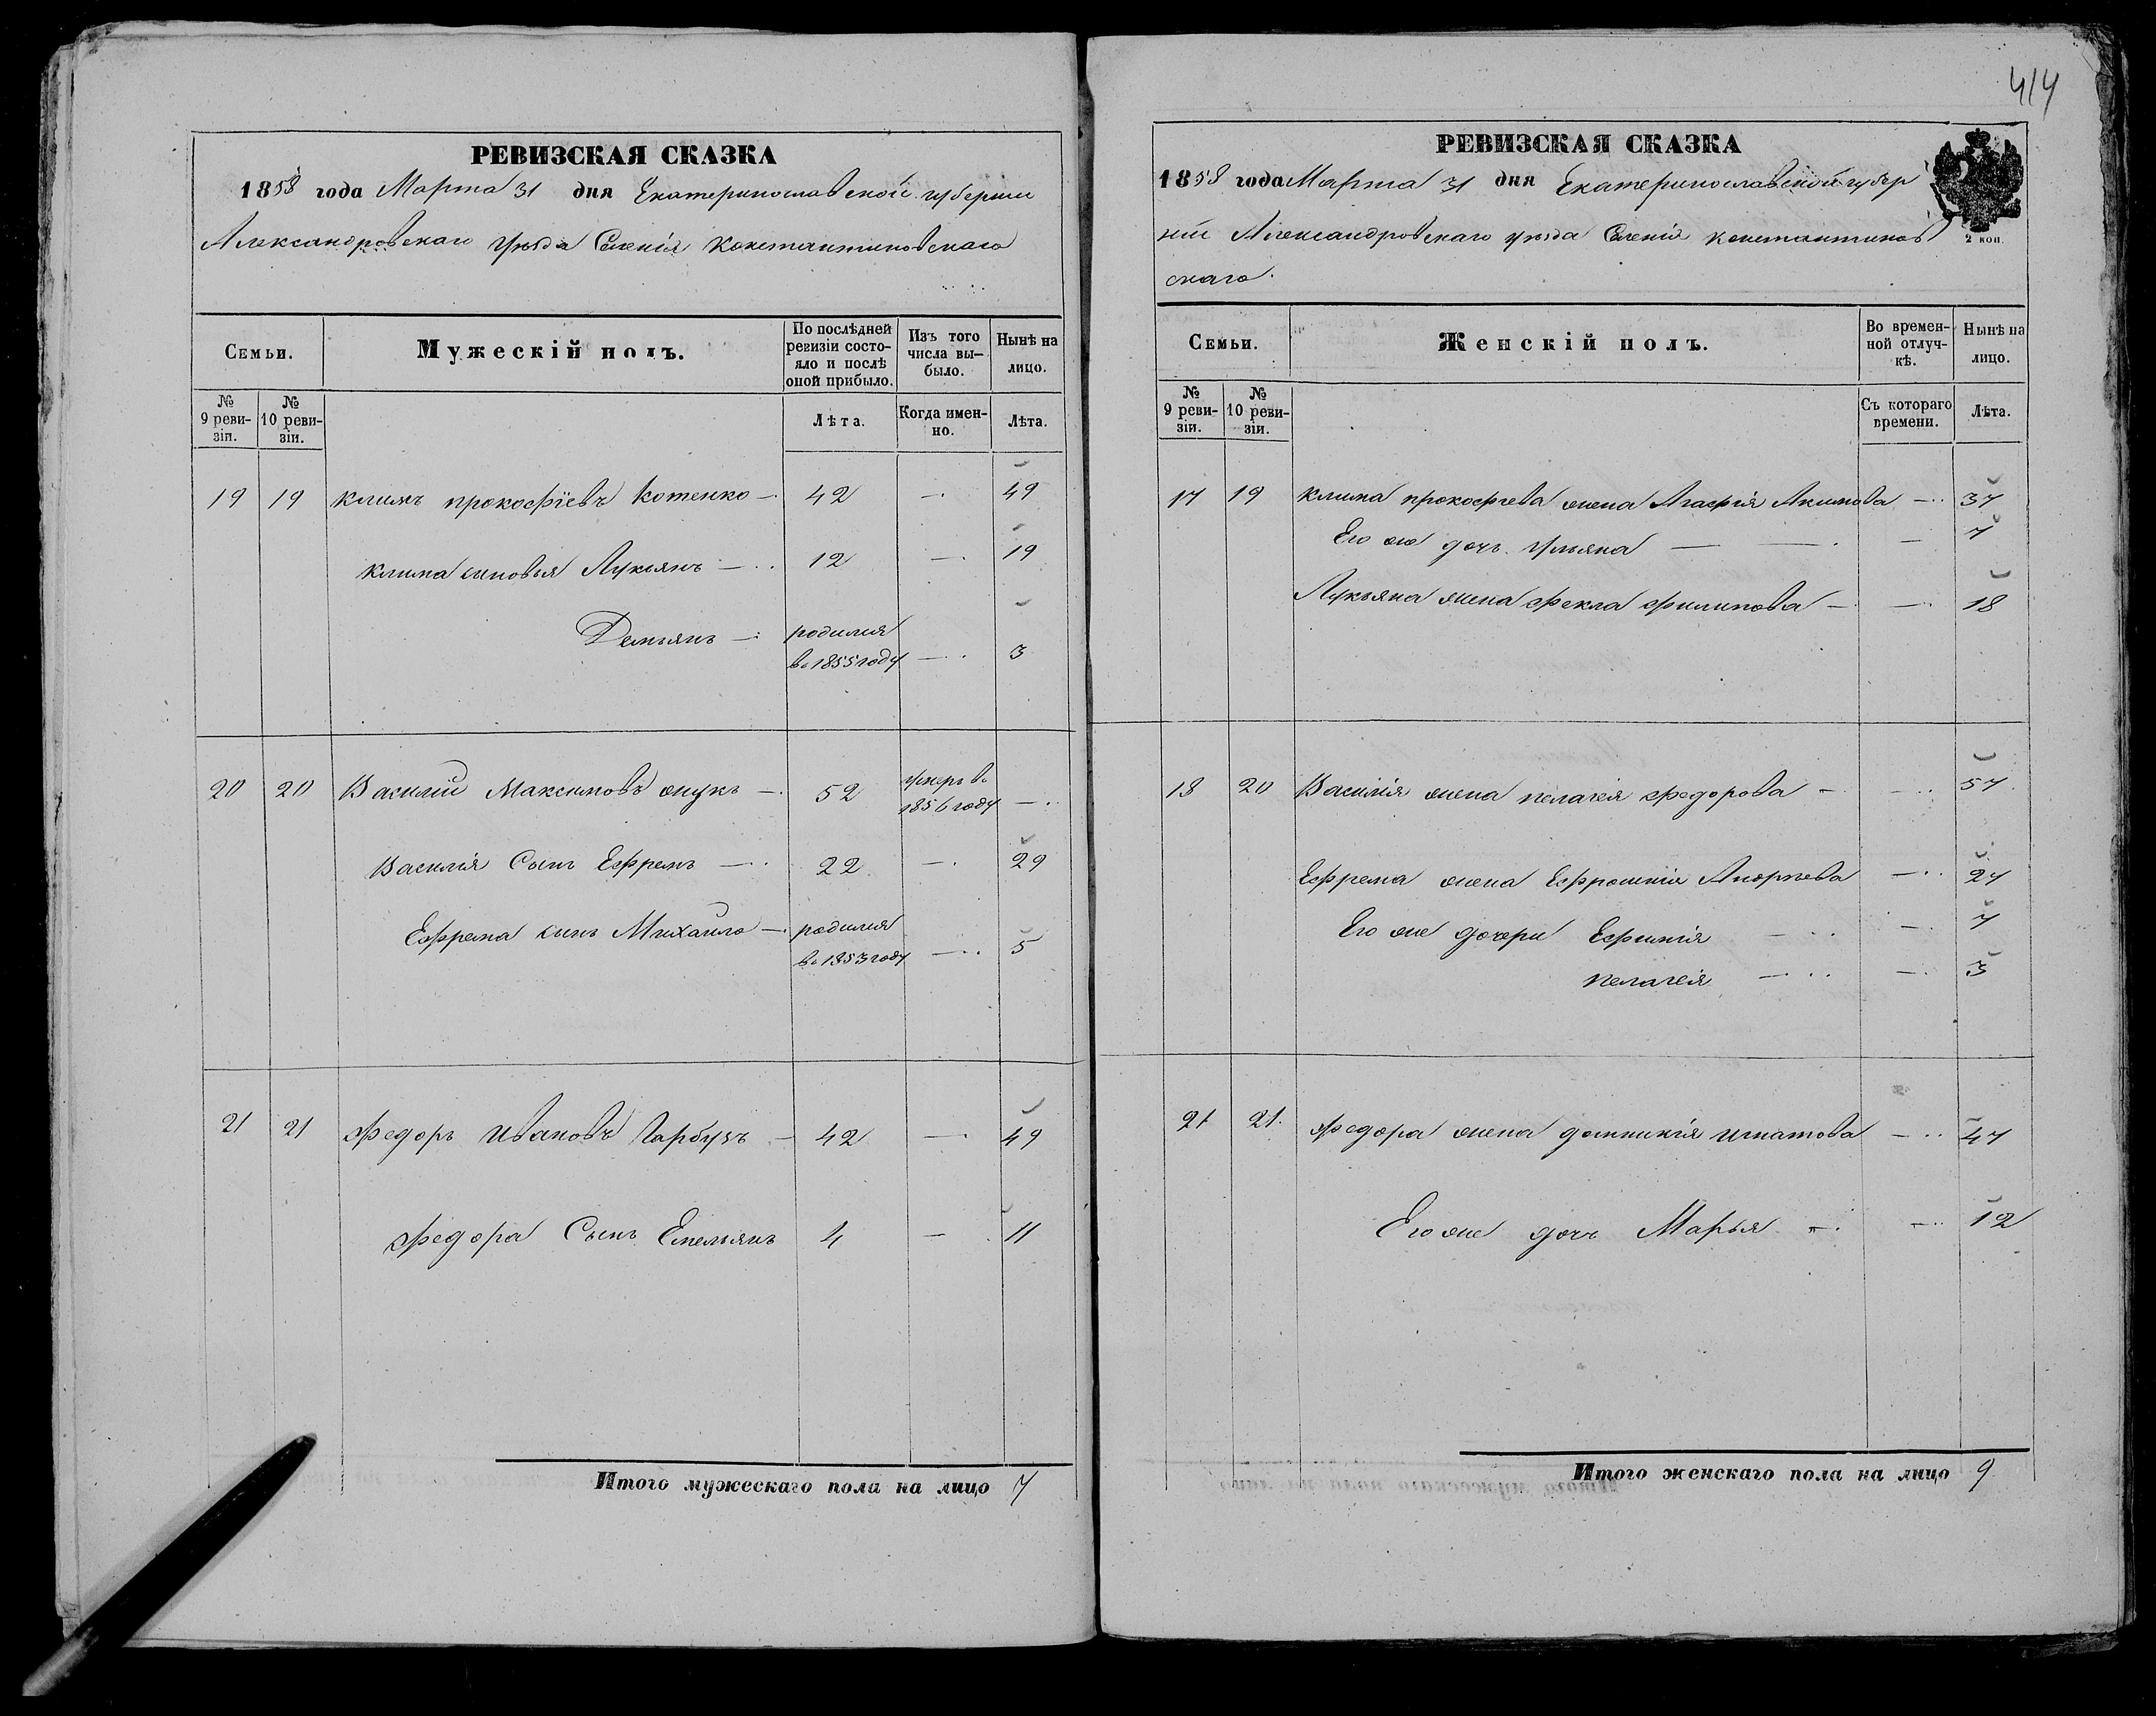 414
РЕВИЗСКАЯ СКАЗКА
1858 года Марта 31 дня Екатеринославской губернии
Александровскаго уѣзда Селенія Константиновскаго
Семьи.
Мужескій полъ.
По послѣдней ревизіи состояло и послѣ оной прибыло.
Изъ того числа выбыло.
Нынѣ на лицо.
№ 9 ревизіи.
№ 10 ревизіи.
Лѣта.
Когда именно.
Лѣта.
19 19 Климъ Прокофіевъ Котенко — 42 — 49
Клима сыновья Лукьянъ — 12 — 19
Демьянъ — родился
въ 1855 году — 3
20 20 Василій Максимовъ — 52 умеръ въ
1856 году —
Василія Сынъ Ефремъ — 22 — 29
Ефрема сынъ Михаило — родился
въ 1853 году — 5
21 21 Федоръ Ивановъ Гарбузъ — 42 — 49
Федора Сынъ Емельянъ 4 — 11
Итого мужескаго пола на лицо 7
РЕВИЗСКАЯ СКАЗКА
1858 года Марта 31 дня Екатеринославской губер
ніи Александровскаго уѣзда Селенія Константинов
скаго.
2 коп.
Семьи.
Женскій полъ.
Во временной отлучкѣ.
Нынѣ на лицо.
№ 9 ревизіи.
№ 10 ревизіи.
Съ котораго времени.
Лѣта.
17 19 Клима Прокофьева жена Агафія Акимова — 37
Его же дочь Ульяна — — 7
Лукьяна жена Фекла Филипова — — 18
18 20 Василія жена Пелагея Федорова — — 57
Ефрема жена Ефросинія Андреева — 27
Его же дочери Ефимія — — 7
Пелагея — — 3
21 21 Федора жена Домникія Игнатова — 47
Его же дочь Марья — — 12
Итого женскаго пола на лицо 9